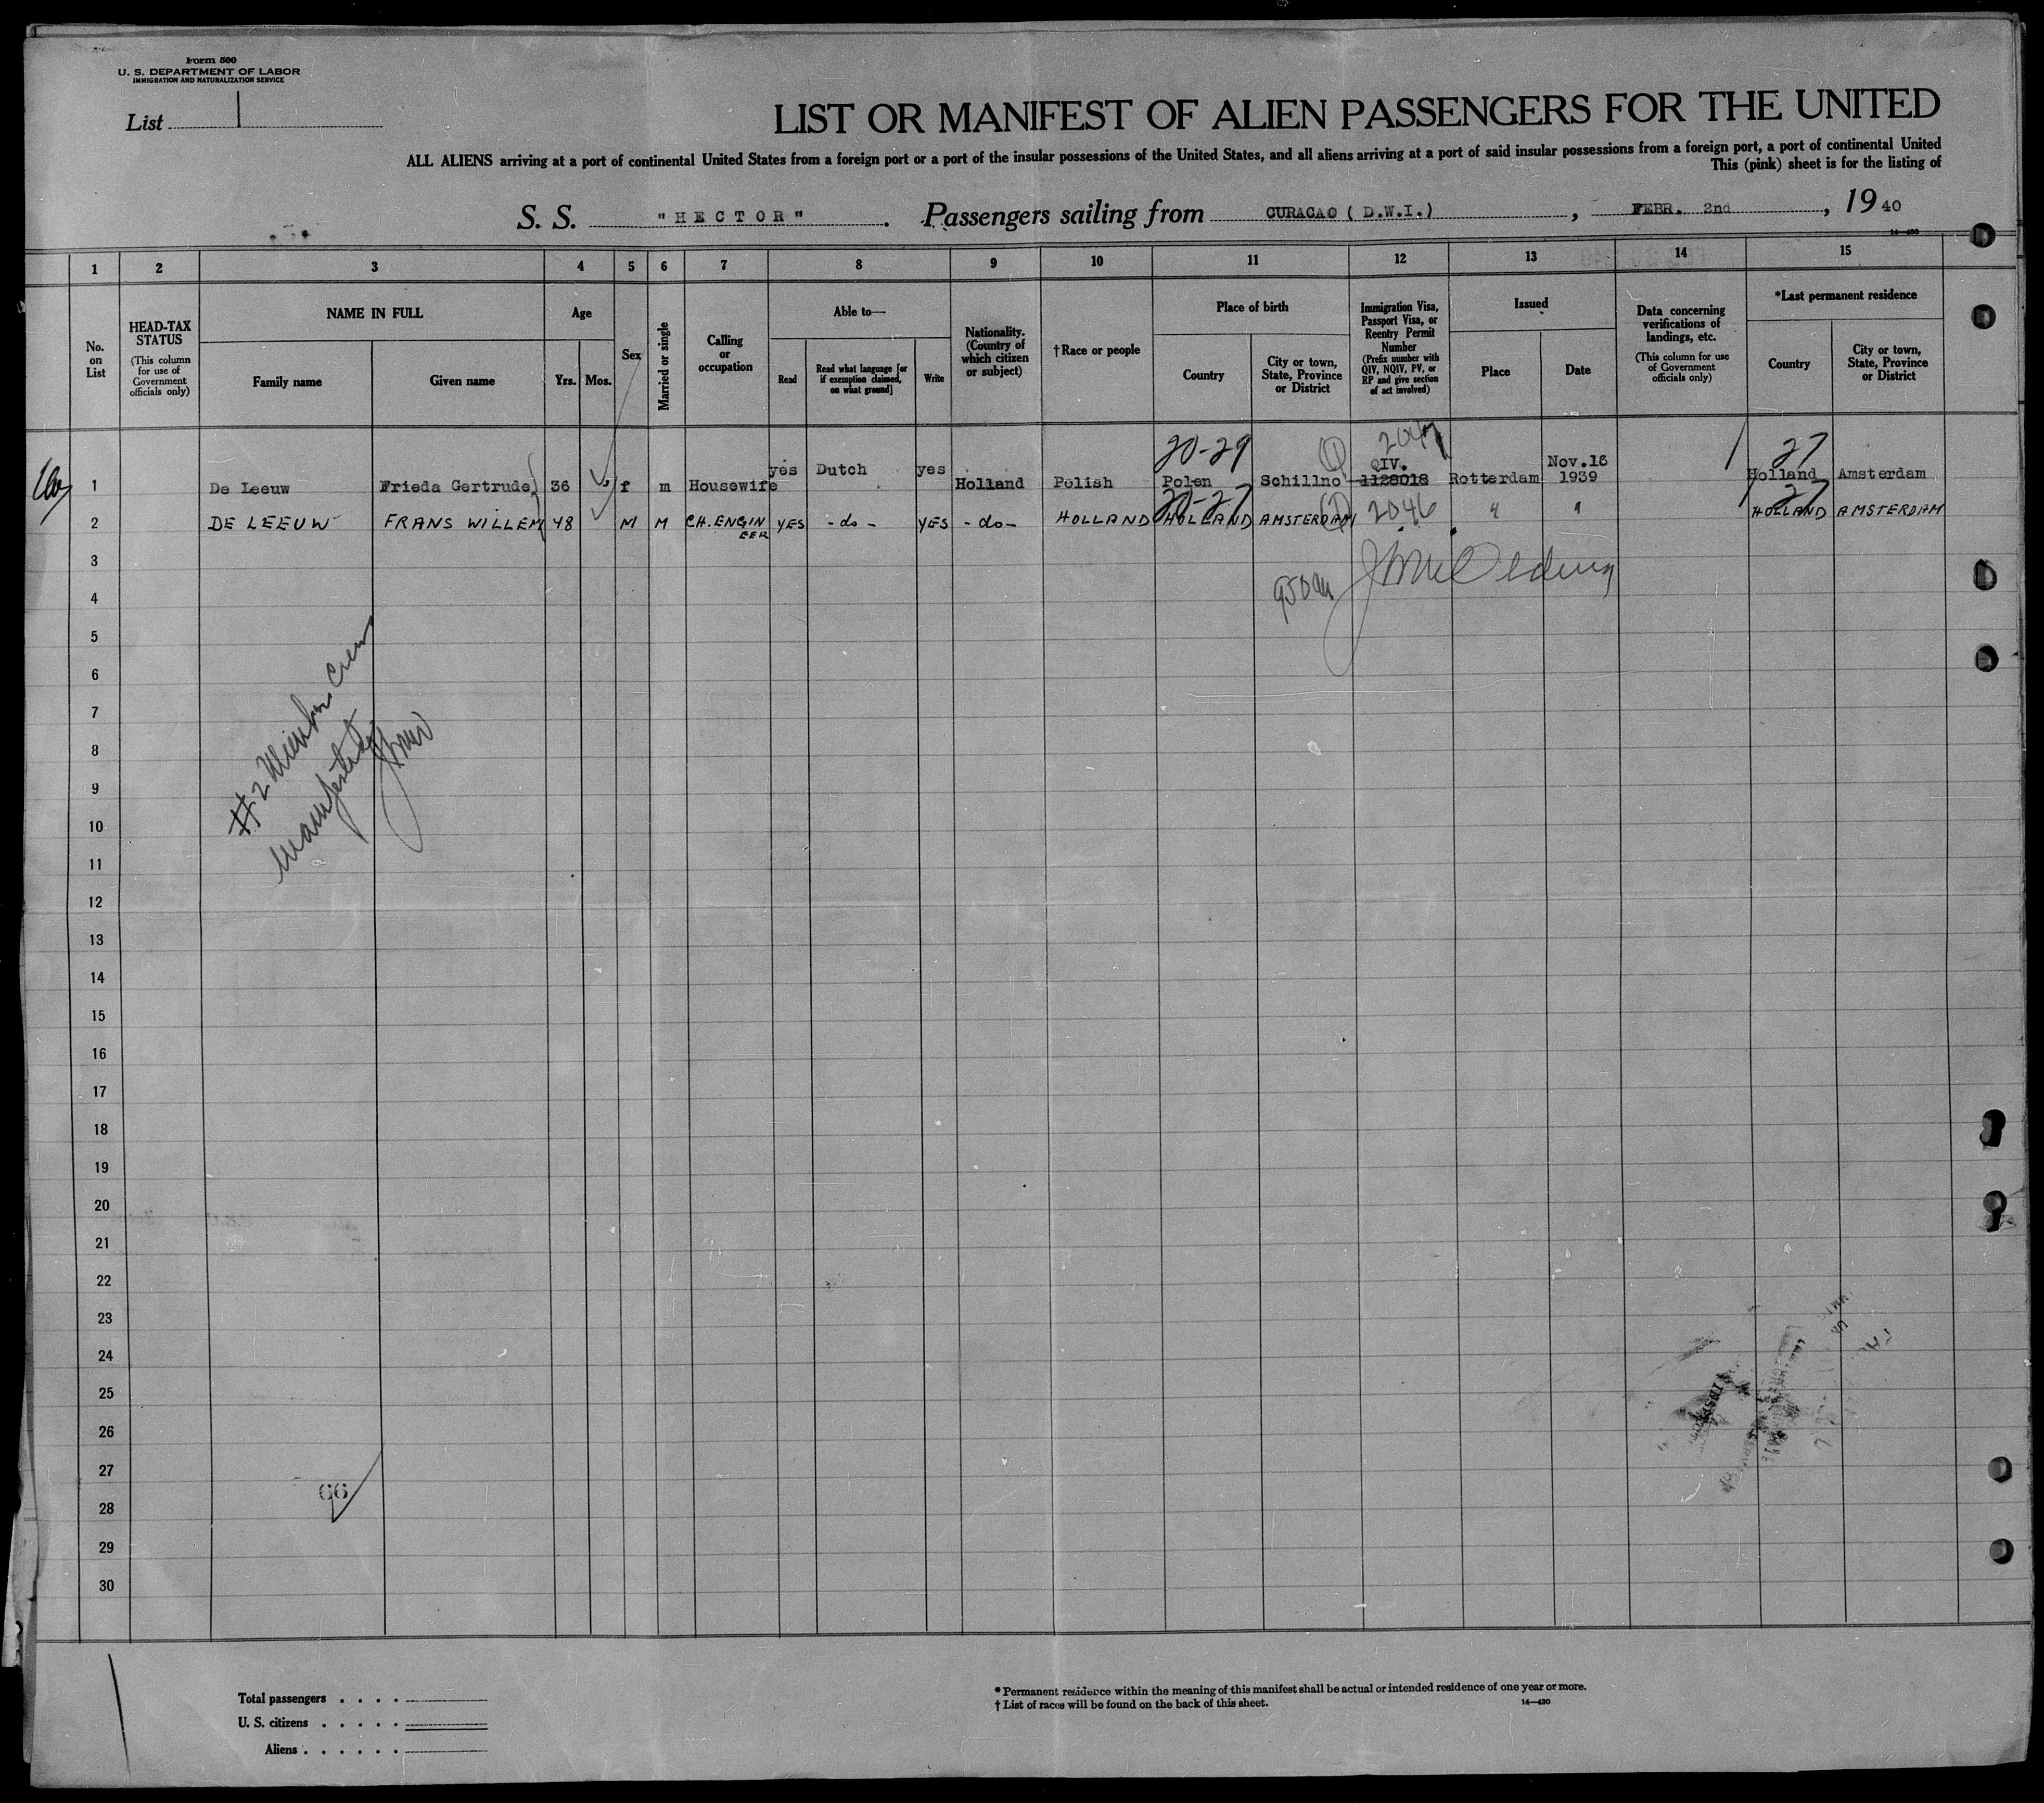 Form 500
U. S. DEPARTMENT OF LABOR
IMMIGRATION AND NATURALIZATION SERVICE
List 1
LIST OR MANIFEST OF ALIEN PASSENGERS FOR THE UNITED
ALL ALIENS arriving at a port of continental United States from a foreign port or a port of the insular possessions of the United States, and all aliens arriving at a port of said insular possessions from a foreign port, a port of continental United
This (pink) sheet is for the listing of
S. S. "HECTOR". Passengers sailing from CURACAO ( D.W.I.), FEBR. 2nd, 19 40
14—430
1 2 3 4 5 6 7 8 9 10 11 12 13 14 15
No. on List
HEAD-TAX STATUS (This column for use of Government officials only)
NAME IN FULL
Family name
Given name
Age
Yrs.
Mos.
Sex
Married or single
Calling or occupation
Able to—
Read
Read what language [or if exemption claimed, on what ground]
Write
Nationality. (Country of which citizen or subject)
†Race or people
Place of birth
Country
City or town, State, Province or District
Immigration Visa, Passport Visa, or Reentry Permit Number (Prefix number with QIV, NQIV, PV, or RP and give section of act involved)
Issued
Place
Date
Data concerning verifications of landings, etc. (This column for use of Government officials only)
*Last permanent residence
Country
City or town, State, Province or District
20-29 2047 27
1 De Leeuw Frieda Gertrude 36 f m Housewife yes Dutch yes Holland Polish Polen Schillno QIV. 1128018 Rotterdam Nov.16 1939 Holland Amsterdam
20-27 27
2 DE LEEUW FRANS WILLEM 48 M M CH. ENGINEER YES -do- YES -do- HOLLAND HOLLAND AMSTERDAM 2046 " " HOLLAND AMSTERDAM
3
4
5
6
7
8
9
10
11
12
13
14
15
16
17
18
19
20
21
22
23
24
25
26
27
28
29
30
#2 Member Crew
manifested
66
Total passengers . . . .
U. S. citizens . . . . .
Aliens . . . . . .
* Permanent residence within the meaning of this manifest shall be actual or intended residence of one year or more.
† List of races will be found on the back of this sheet.
14—430